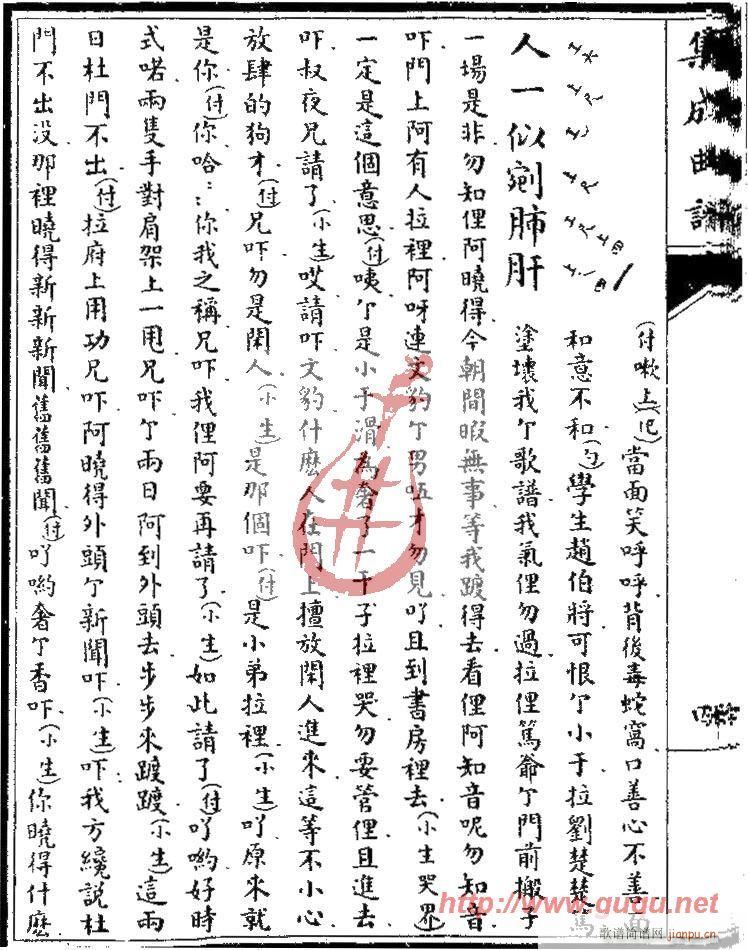 集成曲譜
人一似剜肺肝
(付嗽上)(巴)當面笑呼呼背後毒蛇窩口善心不善
和意不和(白)學生趙伯將可恨个小于拉劉楚楚
塗壞我个歌譜我氣俚勿過拉俚篤爺个門前搬子
一場是非勿知俚阿曉得今朝間暇無事等我踱得去看俚阿知音呢勿知音
吓門上阿有人拉裡阿呀連文豹个男啞才勿見吖且到書房裡去(小生哭界)
一定是這個意思(付)咦个是小于滑為奢了一干子拉裡哭勿要管俚且進去
吓叔夜兄請了(小生)哎請吓文豹什麽人在門上擅放閑人進來這等不小心
放肆的狗才(付)兄吓勿是閑人(小生)是那個吓(付)是小弟拉裡(小生)吖原來就
是你(付)你哈:::你我之稱兄吓我俚阿要再請了(小生)如此請了(付)吖喲好時
式喏兩隻手對肩架上一甩兄吓个兩日阿到外頭去步步來踱踱(小生)這兩
日杜門不出(付)拉府上用功兄吓阿曉得外頭个新聞吓(小生)吓我方纔説杜
門不出没那裡曉得新新新聞舊舊舊聞(付)吖喲奢个香吓(小生)你曉得什麽
http://www.gugu.net
歌谱简谱网
jianpu.cn